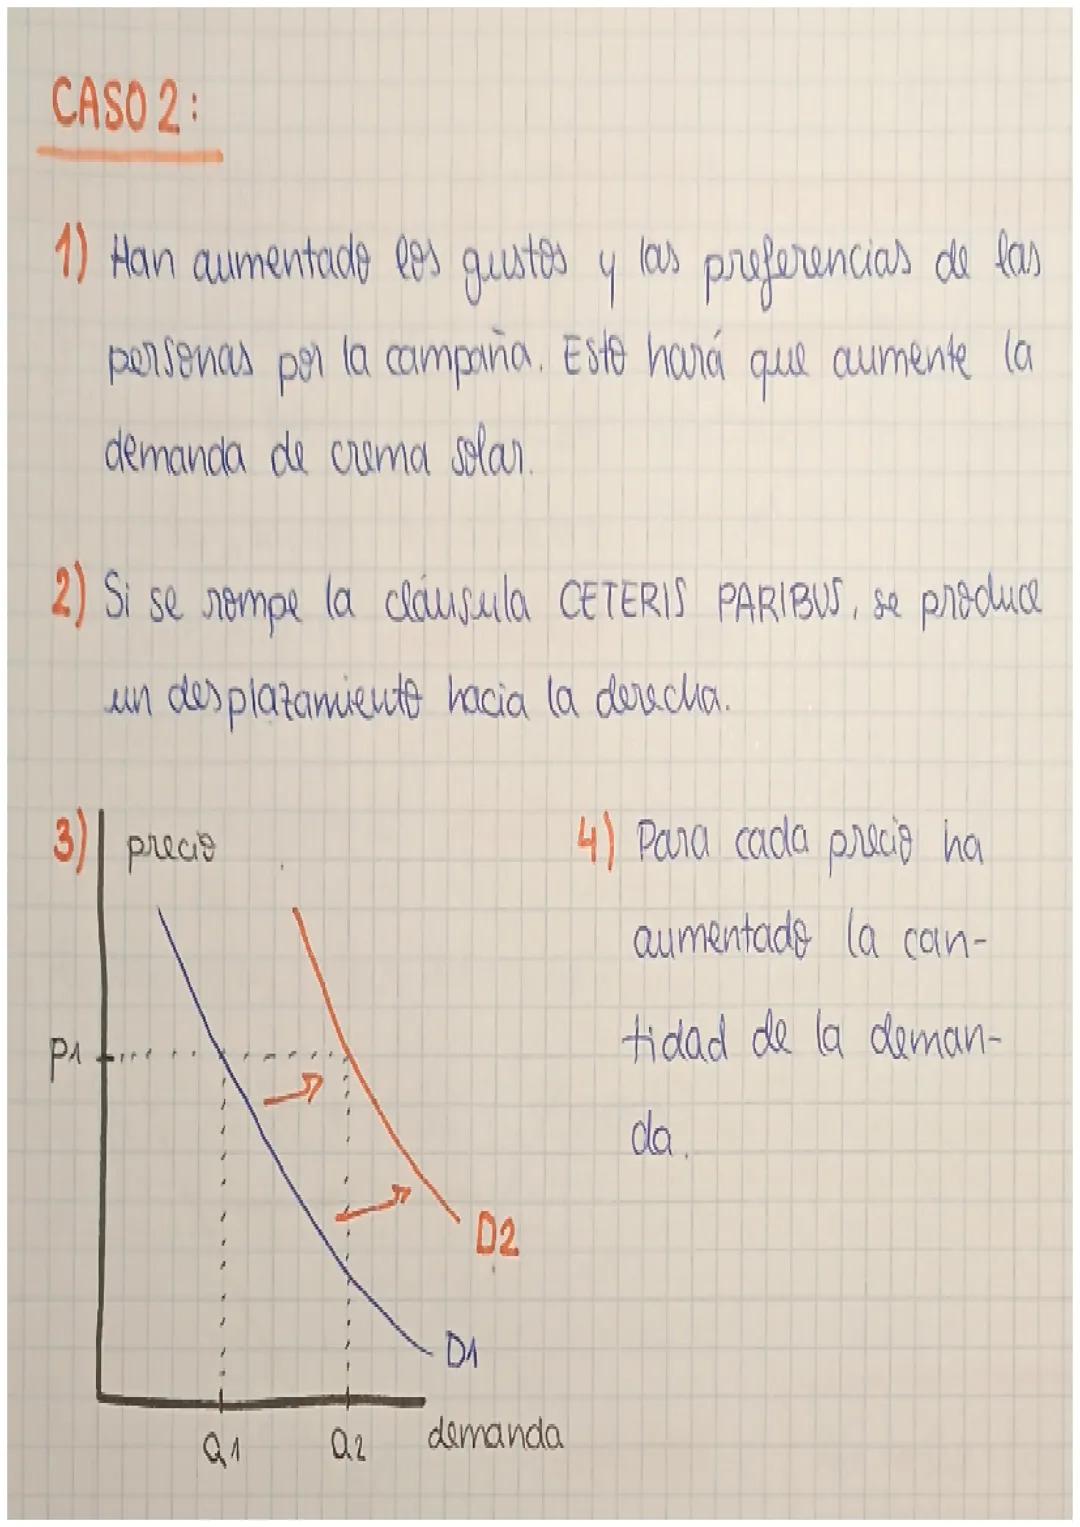 CASO 2:
1) Han aumentado los gustos y las preferencias de las
personas por la campaña. Esto hará que aumente la
demanda de crema solar.
2) Si se rompe la cláusula CETERIS PARIBUS, se produce
un desplazamiento hacia la derecha.
3) precio
P1
D2
D1
Q1 Q2 demanda
4) Para cada precio ha
aumentado la can-
tidad de la deman-
da.